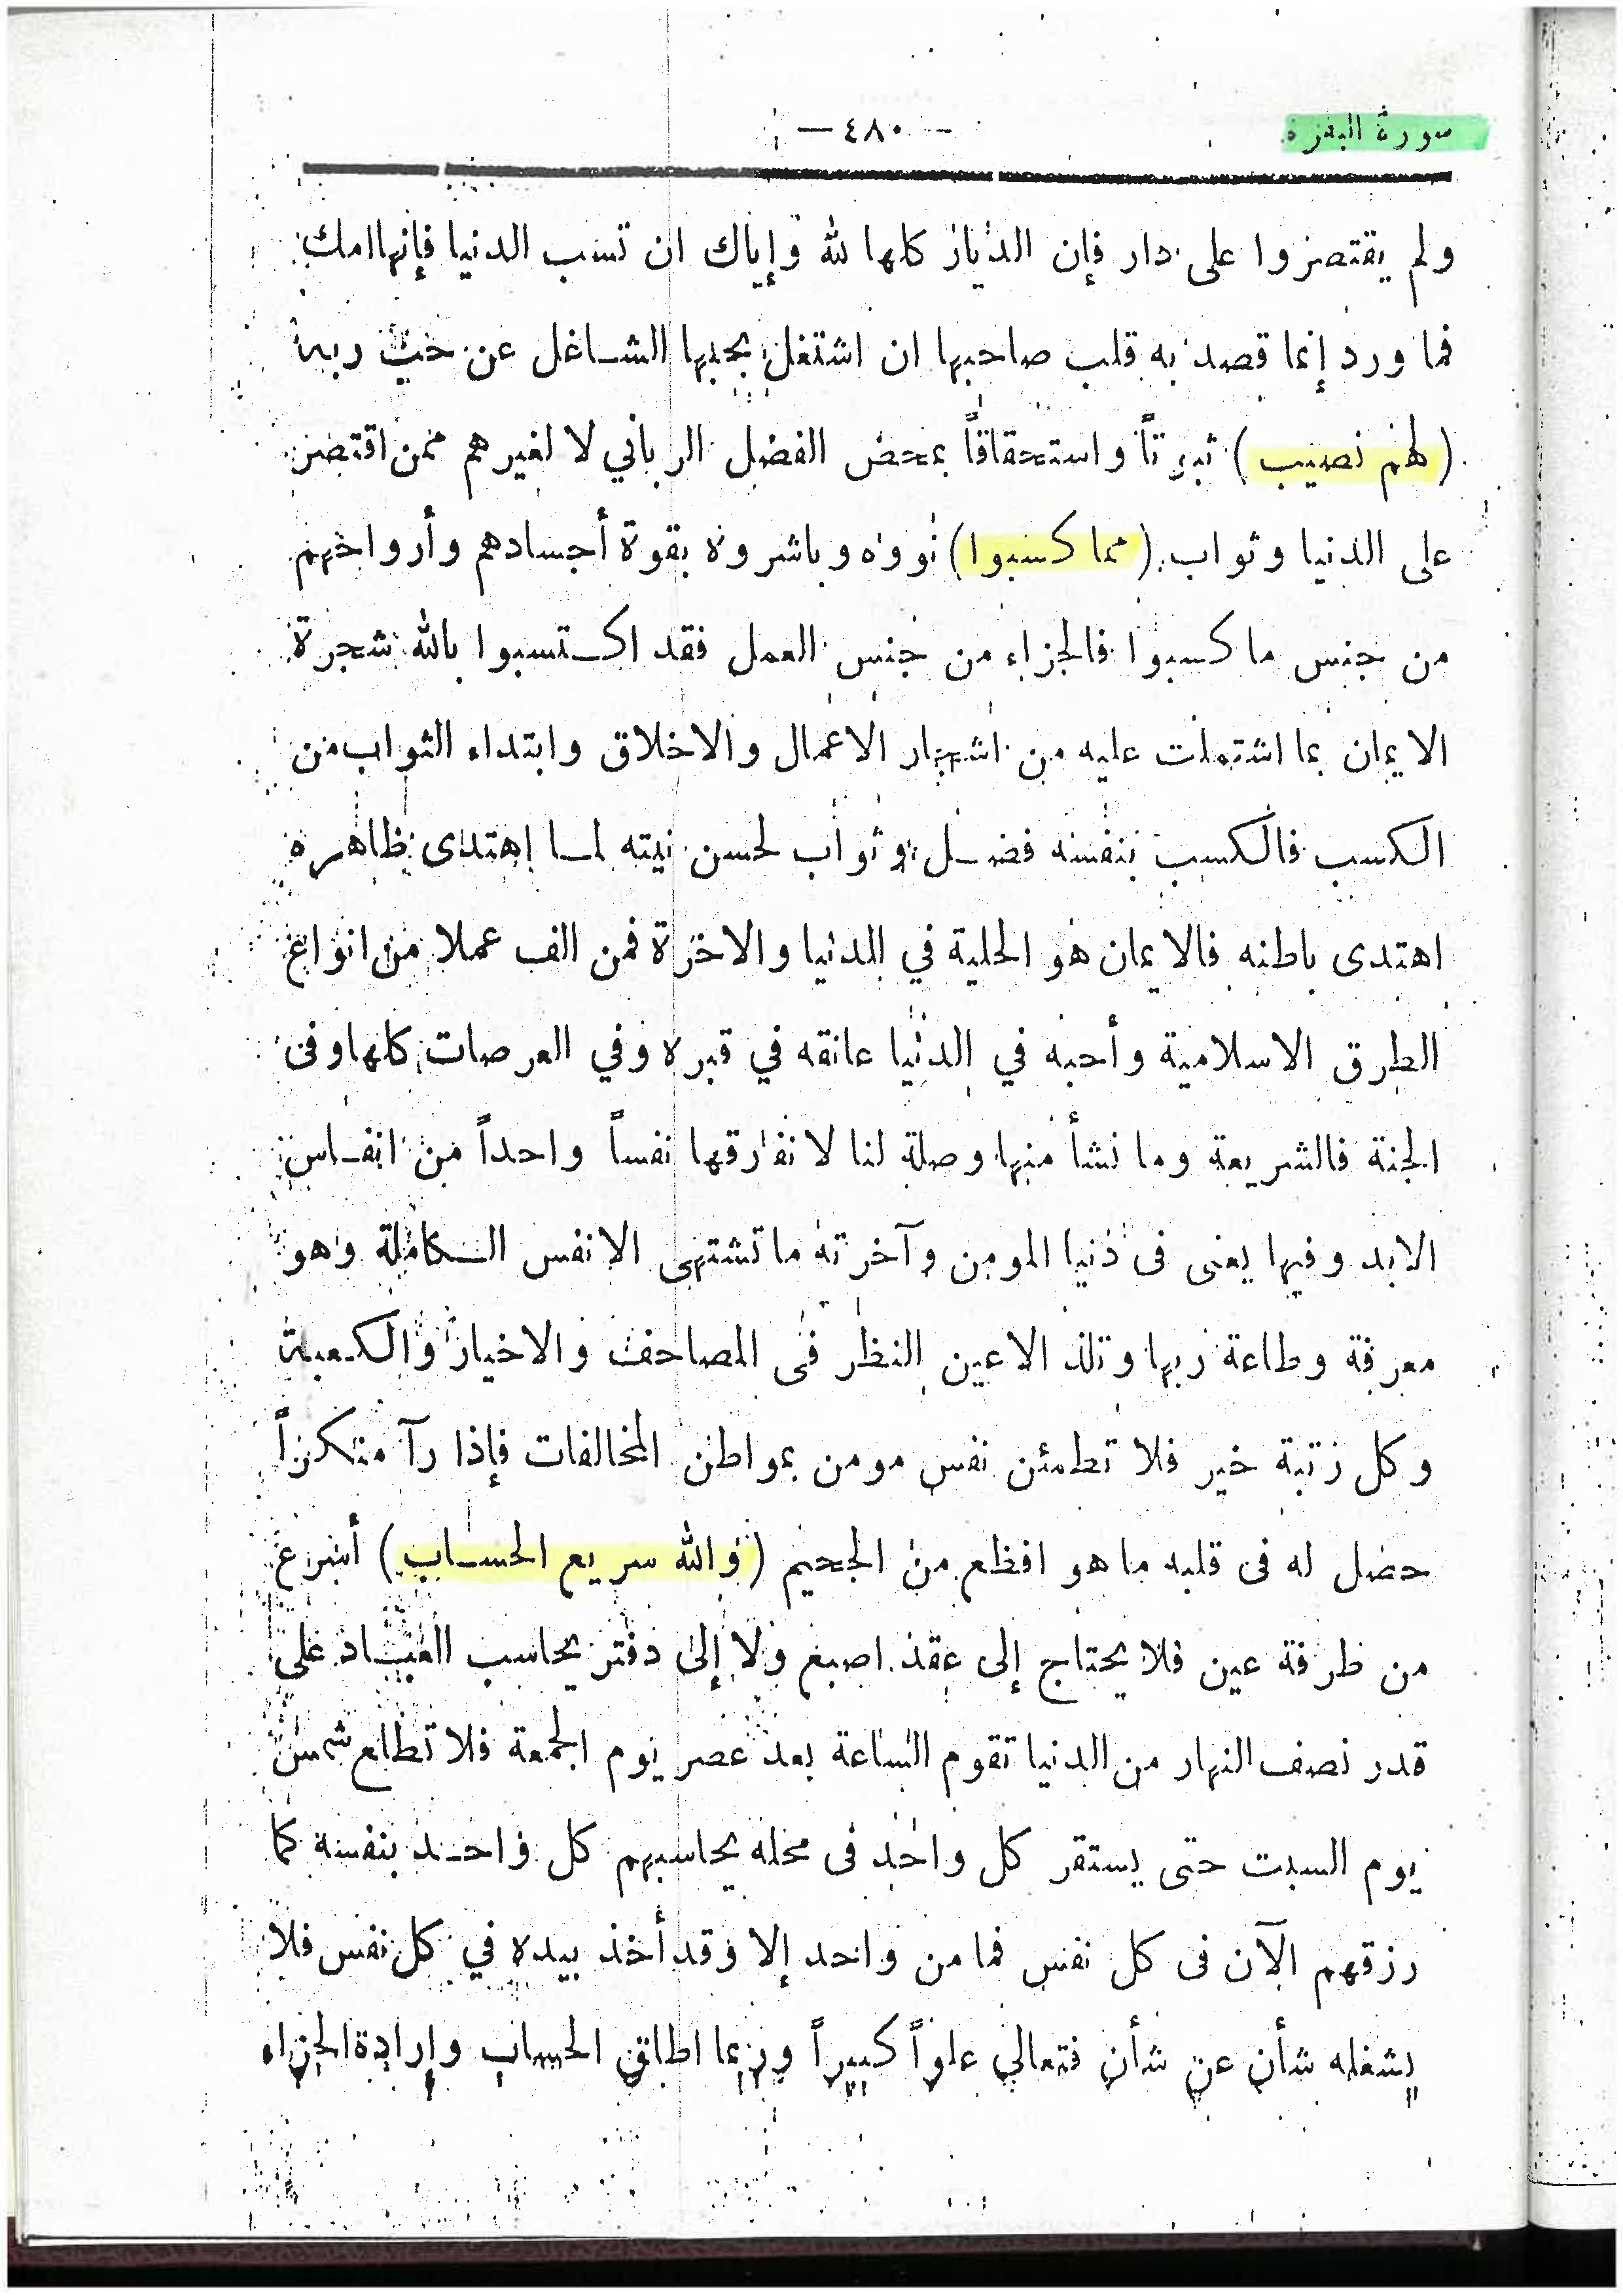 سورة البقرة
— ٤٨٠ —
ولم يقتصروا على دار فإن الديار كلها لله وإياك ان تسب الدنيا فإنها امك
فما ورد إنما قصد به قلب صاحبها ان اشتغل بحبها الشاغل عن حب ربه
(لهم نصيب) ثبوتاً واستحقاقاً بمحض الفضل الرباني لا لغيرهم ممن اقتصر
على الدنيا وثواب (مما كسبوا) نووه وباشروه بقوة أجسادهم وأرواحهم
من جنس ما كسبوا فالجزاء من جنس العمل فقد اكتسبوا بالله شجرة
الايمان بما اشتملت عليه من اشجار الاعمال والاخلاق وابتداء الثواب من
الكسب فالكسب بنفسه فضل وثواب لحسن نيته لما اهتدى ظاهره
اهتدى باطنه فالايمان هو الحلية في الدنيا والاخرة فمن الف عملا من انواع
الطرق الاسلامية وأحبه في الدنيا عانقه في قبره وفي العرصات كلها وفى
الجنة فالشريعة وما نشأ منها وصلة لنا لا نفارقها نفساً واحداً من انفاس
الابد وفيها يعنى فى دنيا المومن وآخرته ما تشتهى الانفس الكاملة وهو
معرفة وطاعة ربها وتلذ الاعين النظر فى المصاحف والاخيار والكعبة
وكل رتبة خير فلا تطمئن نفس مومن بمواطن المخالفات فإذا رآ منكراً
حصل له فى قلبه ما هو افظع من الجحيم (والله سريع الحساب) أسرع
من طرفة عين فلا يحتاج إلى عقد اصبع ولا إلى دفتر يحاسب العباد على
قدر نصف النهار من الدنيا تقوم الساعة بعد عصر يوم الجمعة فلا تطلع شمس
يوم السبت حتى يستقر كل واحد فى محله يحاسبهم كل واحد بنفسه كما
رزقهم الآن فى كل نفس فما من واحد إلا وقد أخذ بيده في كل نفس فلا
يشغله شأن عن شأن فتعالى علواً كبيراً وربما اطلق الحساب وإرادة الجزاء